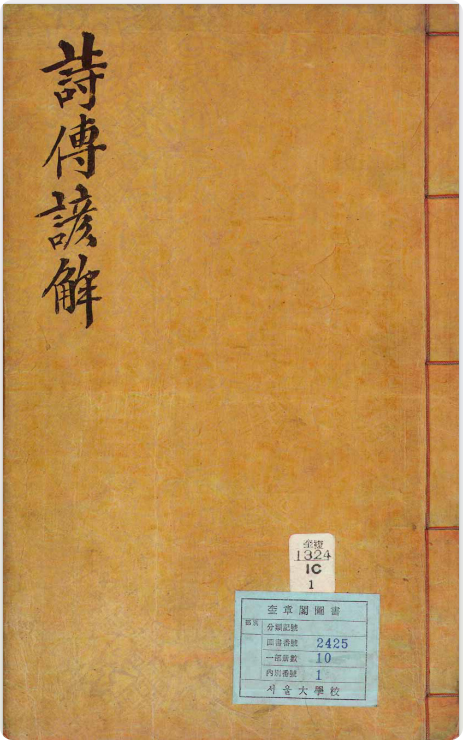 詩傳諺解
奎貴
1324
1C
1
奎章閣圖書
分類記號
圖書番號 2425
一部册數 10
內別番號 1
서울大學校